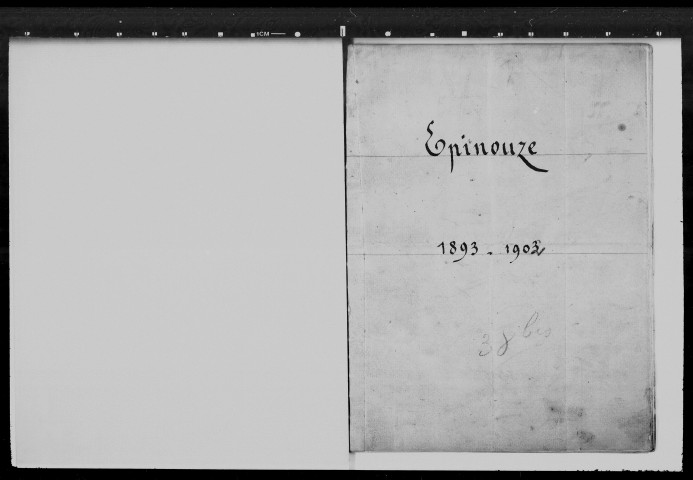 Epinouze
1893 - 1902
38 bis